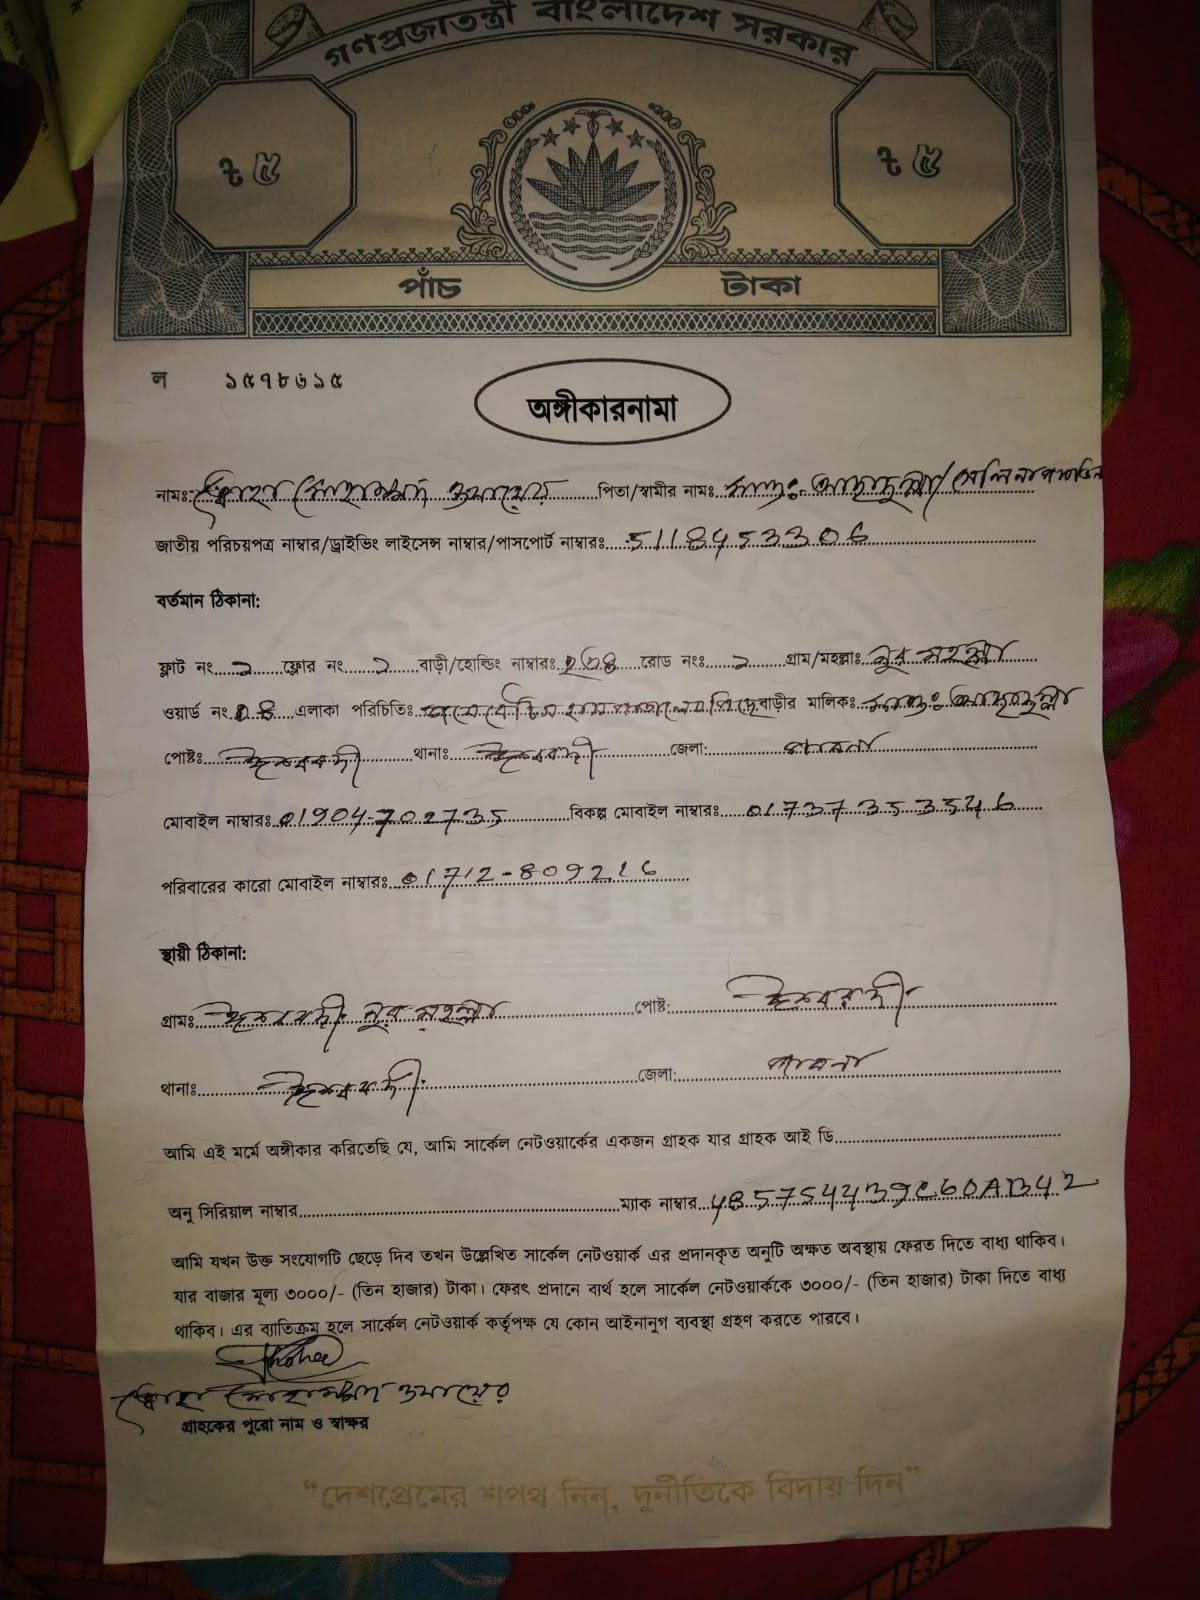 গণপ্রজাতন্ত্রী বাংলাদেশ সরকার
৳ ৫ ৳ ৫
পাঁচ টাকা
ল ১৫৭৮৬১৫
অঙ্গীকারনামা
নামঃ মোহাম্মদ পিতা/স্বামীর নামঃ
জাতীয় পরিচয়পত্র নাম্বার/ড্রাইভিং লাইসেন্স নাম্বার/পাসপোর্ট নাম্বারঃ 5118453306
বর্তমান ঠিকানা:
ফ্লাট নং ফ্লোর নং বাড়ী/হোল্ডিং নাম্বারঃ রোড নংঃ গ্রাম/মহল্লাঃ নুর মহল্লা
ওয়ার্ড নং এলাকা পরিচিতিঃ বাড়ীর মালিকঃ
পোষ্টঃ ঈশ্বরদী থানাঃ ঈশ্বরদী জেলা: পাবনা
মোবাইল নাম্বারঃ 01904-702735 বিকল্প মোবাইল নাম্বারঃ 01737353546
পরিবারের কারো মোবাইল নাম্বারঃ 01712-809216
স্থায়ী ঠিকানা:
গ্রামঃ ঈশ্বরদী নুর মহল্লা পোষ্ট: ঈশ্বরদী
থানাঃ ঈশ্বরদী জেলা: পাবনা
আমি এই মর্মে অঙ্গীকার করিতেছি যে, আমি সার্কেল নেটওয়ার্কের একজন গ্রাহক যার গ্রাহক আই ডি
অনু সিরিয়াল নাম্বার ম্যাক নাম্বার
আমি যখন উক্ত সংযোগটি ছেড়ে দিব তখন উল্লেখিত সার্কেল নেটওয়ার্ক এর প্রদানকৃত অনুটি অক্ষত অবস্থায় ফেরত দিতে বাধ্য থাকিব।
যার বাজার মূল্য ৩০০০/- (তিন হাজার) টাকা। ফেরৎ প্রদানে ব্যর্থ হলে সার্কেল নেটওয়ার্ককে ৩০০০/- (তিন হাজার) টাকা দিতে বাধ্য
থাকিব। এর ব্যাতিক্রম হলে সার্কেল নেটওয়ার্ক কর্তৃপক্ষ যে কোন আইনানুগ ব্যবস্থা গ্রহণ করতে পারবে।
মোহাম্মদ
গ্রাহকের পুরো নাম ও স্বাক্ষর
“দেশপ্রেমের শপথ নিন, দুর্নীতিকে বিদায় দিন”